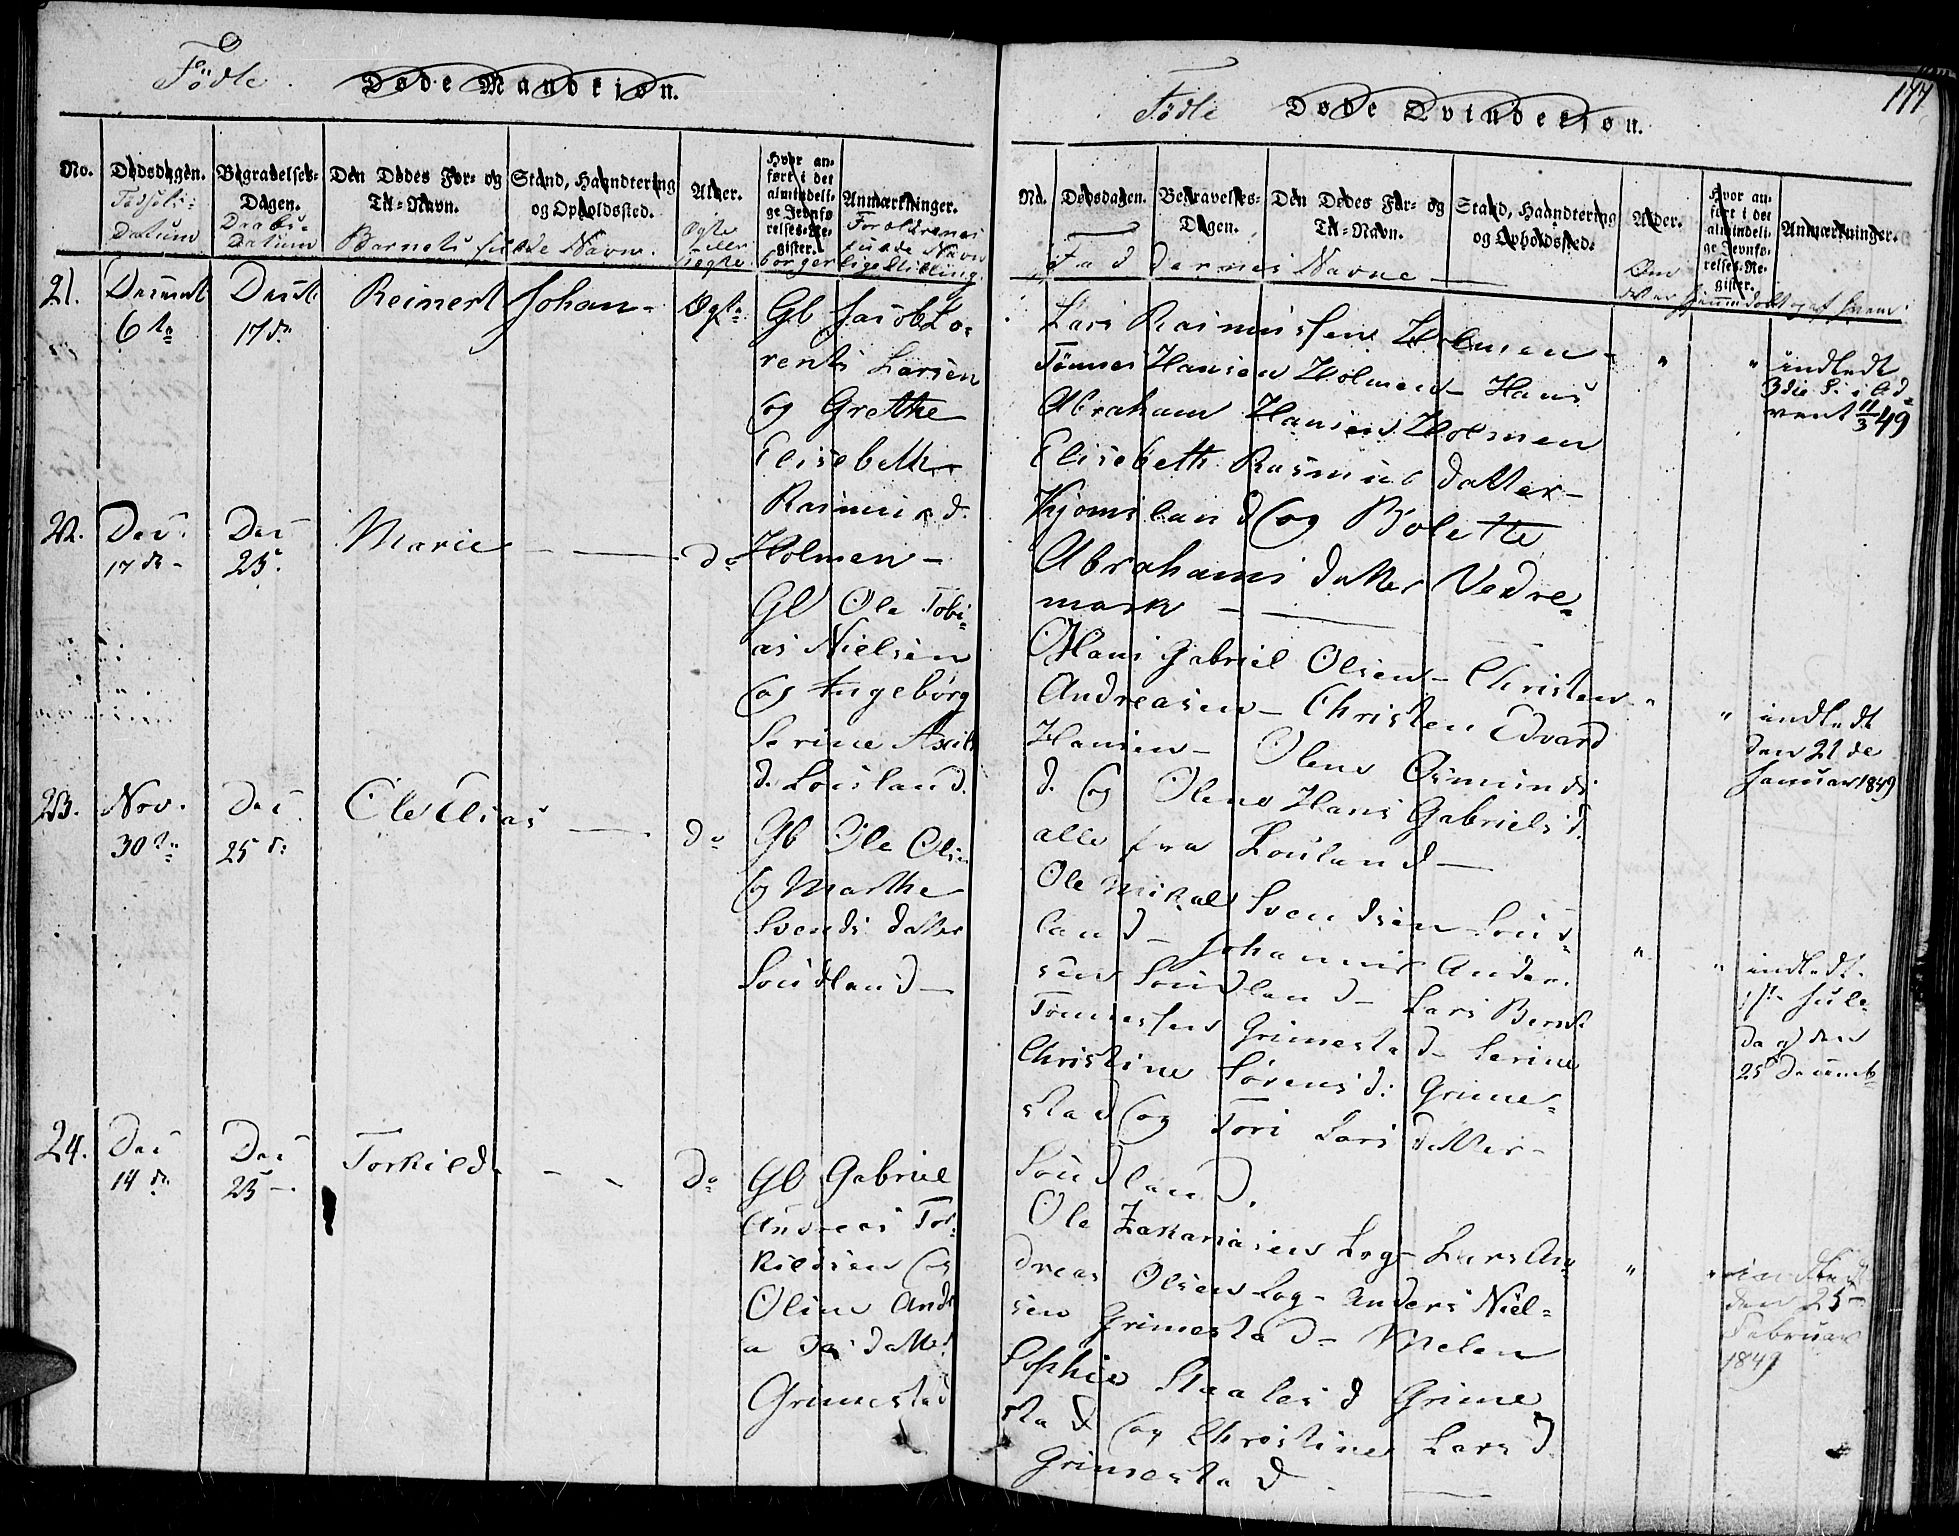 Fødte. Døde Mandkiøn.
No.
Dødsdagen.
Begravelses-Dagen.
Den Dødes For- og Til-Navn.
Stand, Haandtering og Opholdssted.
Alder.
Hvor anført i det almindelige Jevnførelses-Register.
Anmærkninger.
Datum
Daabs-
Datum
Barnets fulde Navn.
Ægte
Forældrenes
fulde Navn
borgerlige Stilling.
21.
Decemb
6te
17de
Reinert Johan -
Ægte
Gb Jacob Lo-
rents Larsen
og Grethe
Elisebeth
Rasmus d.
Holmen -
22.
Dec.
17de -
Dec
25.
Marie
do
Gb Ole Tobi-
as Nielsen
og Ingebørg
Serine
d. Louland.
23.
Nov.
30te
Dec
25d:
Ole Elias
do
Gb Ole Olsen
og Marthe
Svends datter
Loudland -
24.
Dec
14de
Dec
25 -
Torkild
do
Gb Gabriel
Andreas Tor-
kildsen og
Oline
datter
Grimestad
177
Fødte Døde Qvindekiøn.
No.
Dødsdagen.
Begravelses-Dagen.
Den Dødes For- og Til-Navn.
Stand, Haandtering og Opholdssted.
Alder.
Hvor anført i det almindelige Jevnførelses-Register.
Anmærkninger.
Faddernes Navne
Om
hjemmedøbt og af hvem
Lars Rasmussen Holmen -
Tønnes Hansen Holmen - Hans
Abraham Hansen Holmen
Elisebeth Rasmus datter -
Kjømsland og Bolette
Abrahams datter Vedre-
mark -
" " indledt
3die S. i Ad-
vent 11/3 49
Hans Gabriel Olsen - Christen
Andreasen - Christen Edvard
Hansen - Olene Osmunds
d. og Olene Hans Gabriels d.
alle fra Louland -
" " indledt
den 21de
Januar 1849
Ole Mikal Svendsen Loud-
land - Johannes Ander-
sen Loudland - Lars Bernt
Tønnessen Grimestad - Serine
Christine Sørens d. Grime-
stad og Tori Lars datter -
Loudland.
" " indledt
1ste Jule-
dag den
25 Decemb
Ole Zakariasen Log - Lars An-
dreas Olsen Log - Anders Niel-
sen Grimestad -
Sophie Staales d Grime
stad og Christine Lars d.
Grimestad -
" " indledt
den 25
Februar
1849